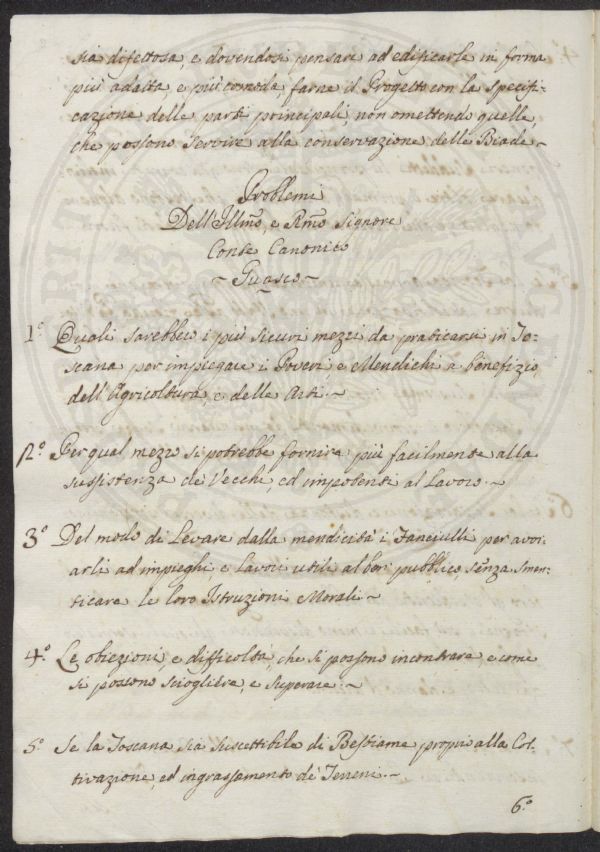 sia difettosa, e dovendosi pensare ad edificarle in forma
più adatta, e più comoda, farne il Progetto con la specifi-
cazione delle parti principali, non omettendo quelle,
che possono servire alla conservazione delle Biade ~
Problemi
Dell'Illmo, e Rmo Signore
Conte Canonico
~ Guasco ~
1.o Quali sarebbero i più sicuri mezzi da praticarsi in To-
scana per impiegare i Poveri e Mendichi a benefizio,
dell'Agricoltura, e delle Arti. ~
2.o Per qual mezzo si potrebbe fornire più facilmente alla
sussistenza de' Vecchi, ed impotenti al Lavoro. ~
3.o Del modo di Levare dalla mendicità i Fanciulli per avvi-
arli ad impieghi e Lavori utili al ben pubblico, senza smen-
ticare le loro Istruzioni Morali ~
4.o Le obiezioni, e difficoltà, che si possono incontrare, e come
si possono sciogliere, e superare. ~
5.o Se la Toscana sia suscettibile di Bestiame proprio alla Col-
tivazione, ed ingrassamento de' Terreni. ~
6.o